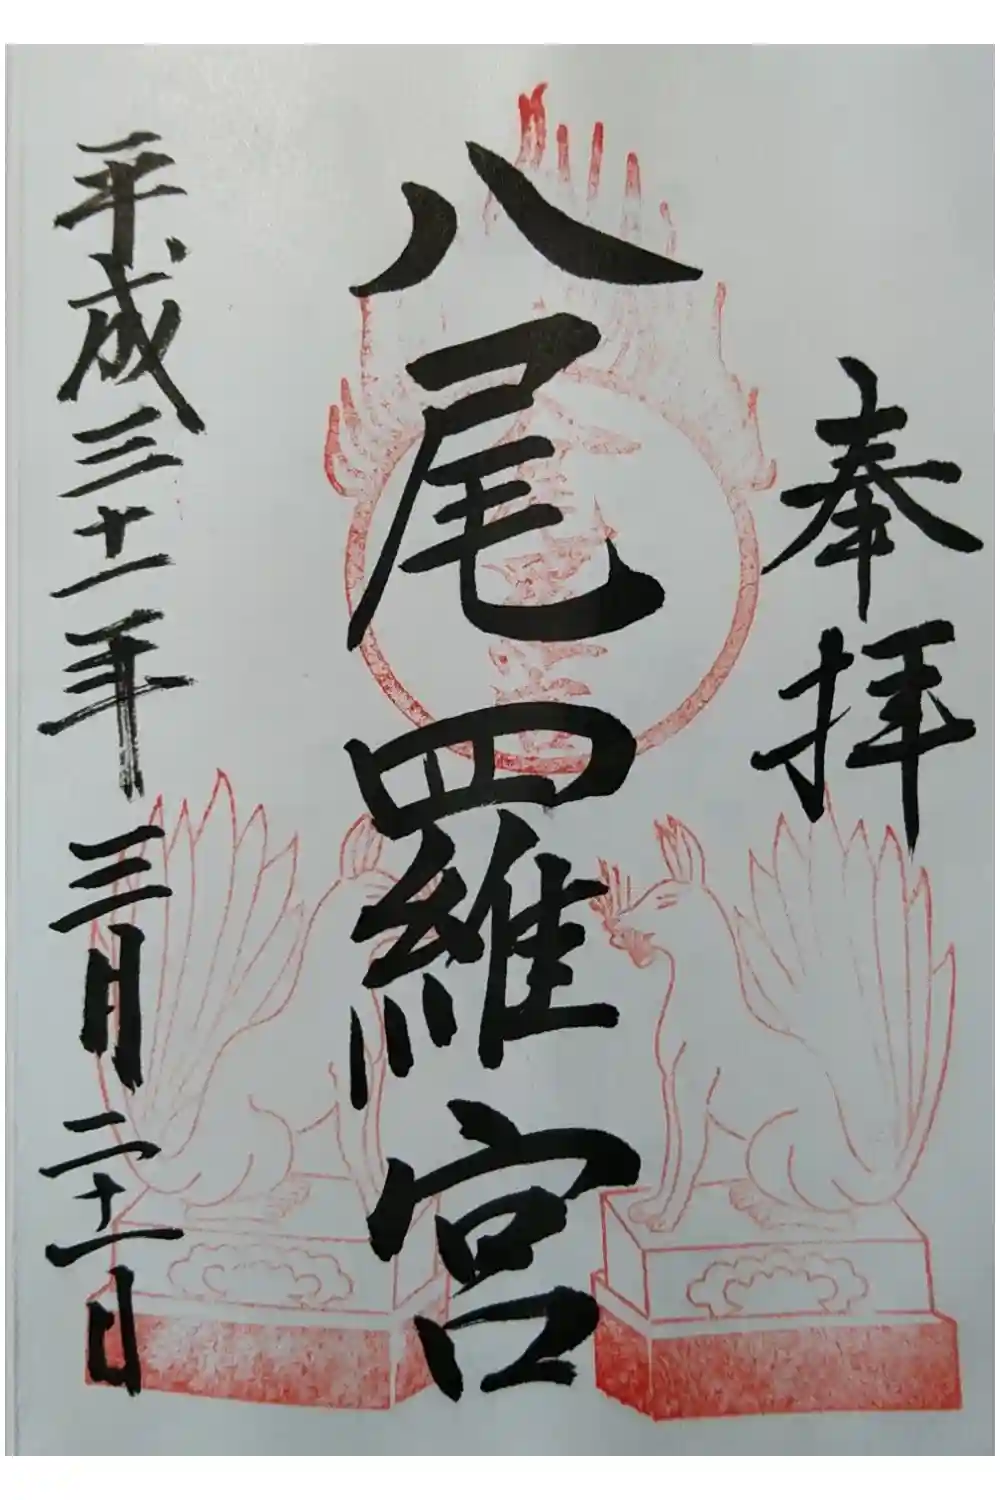 奉拝
八尾羅宮
平成三十一年三月二十一日